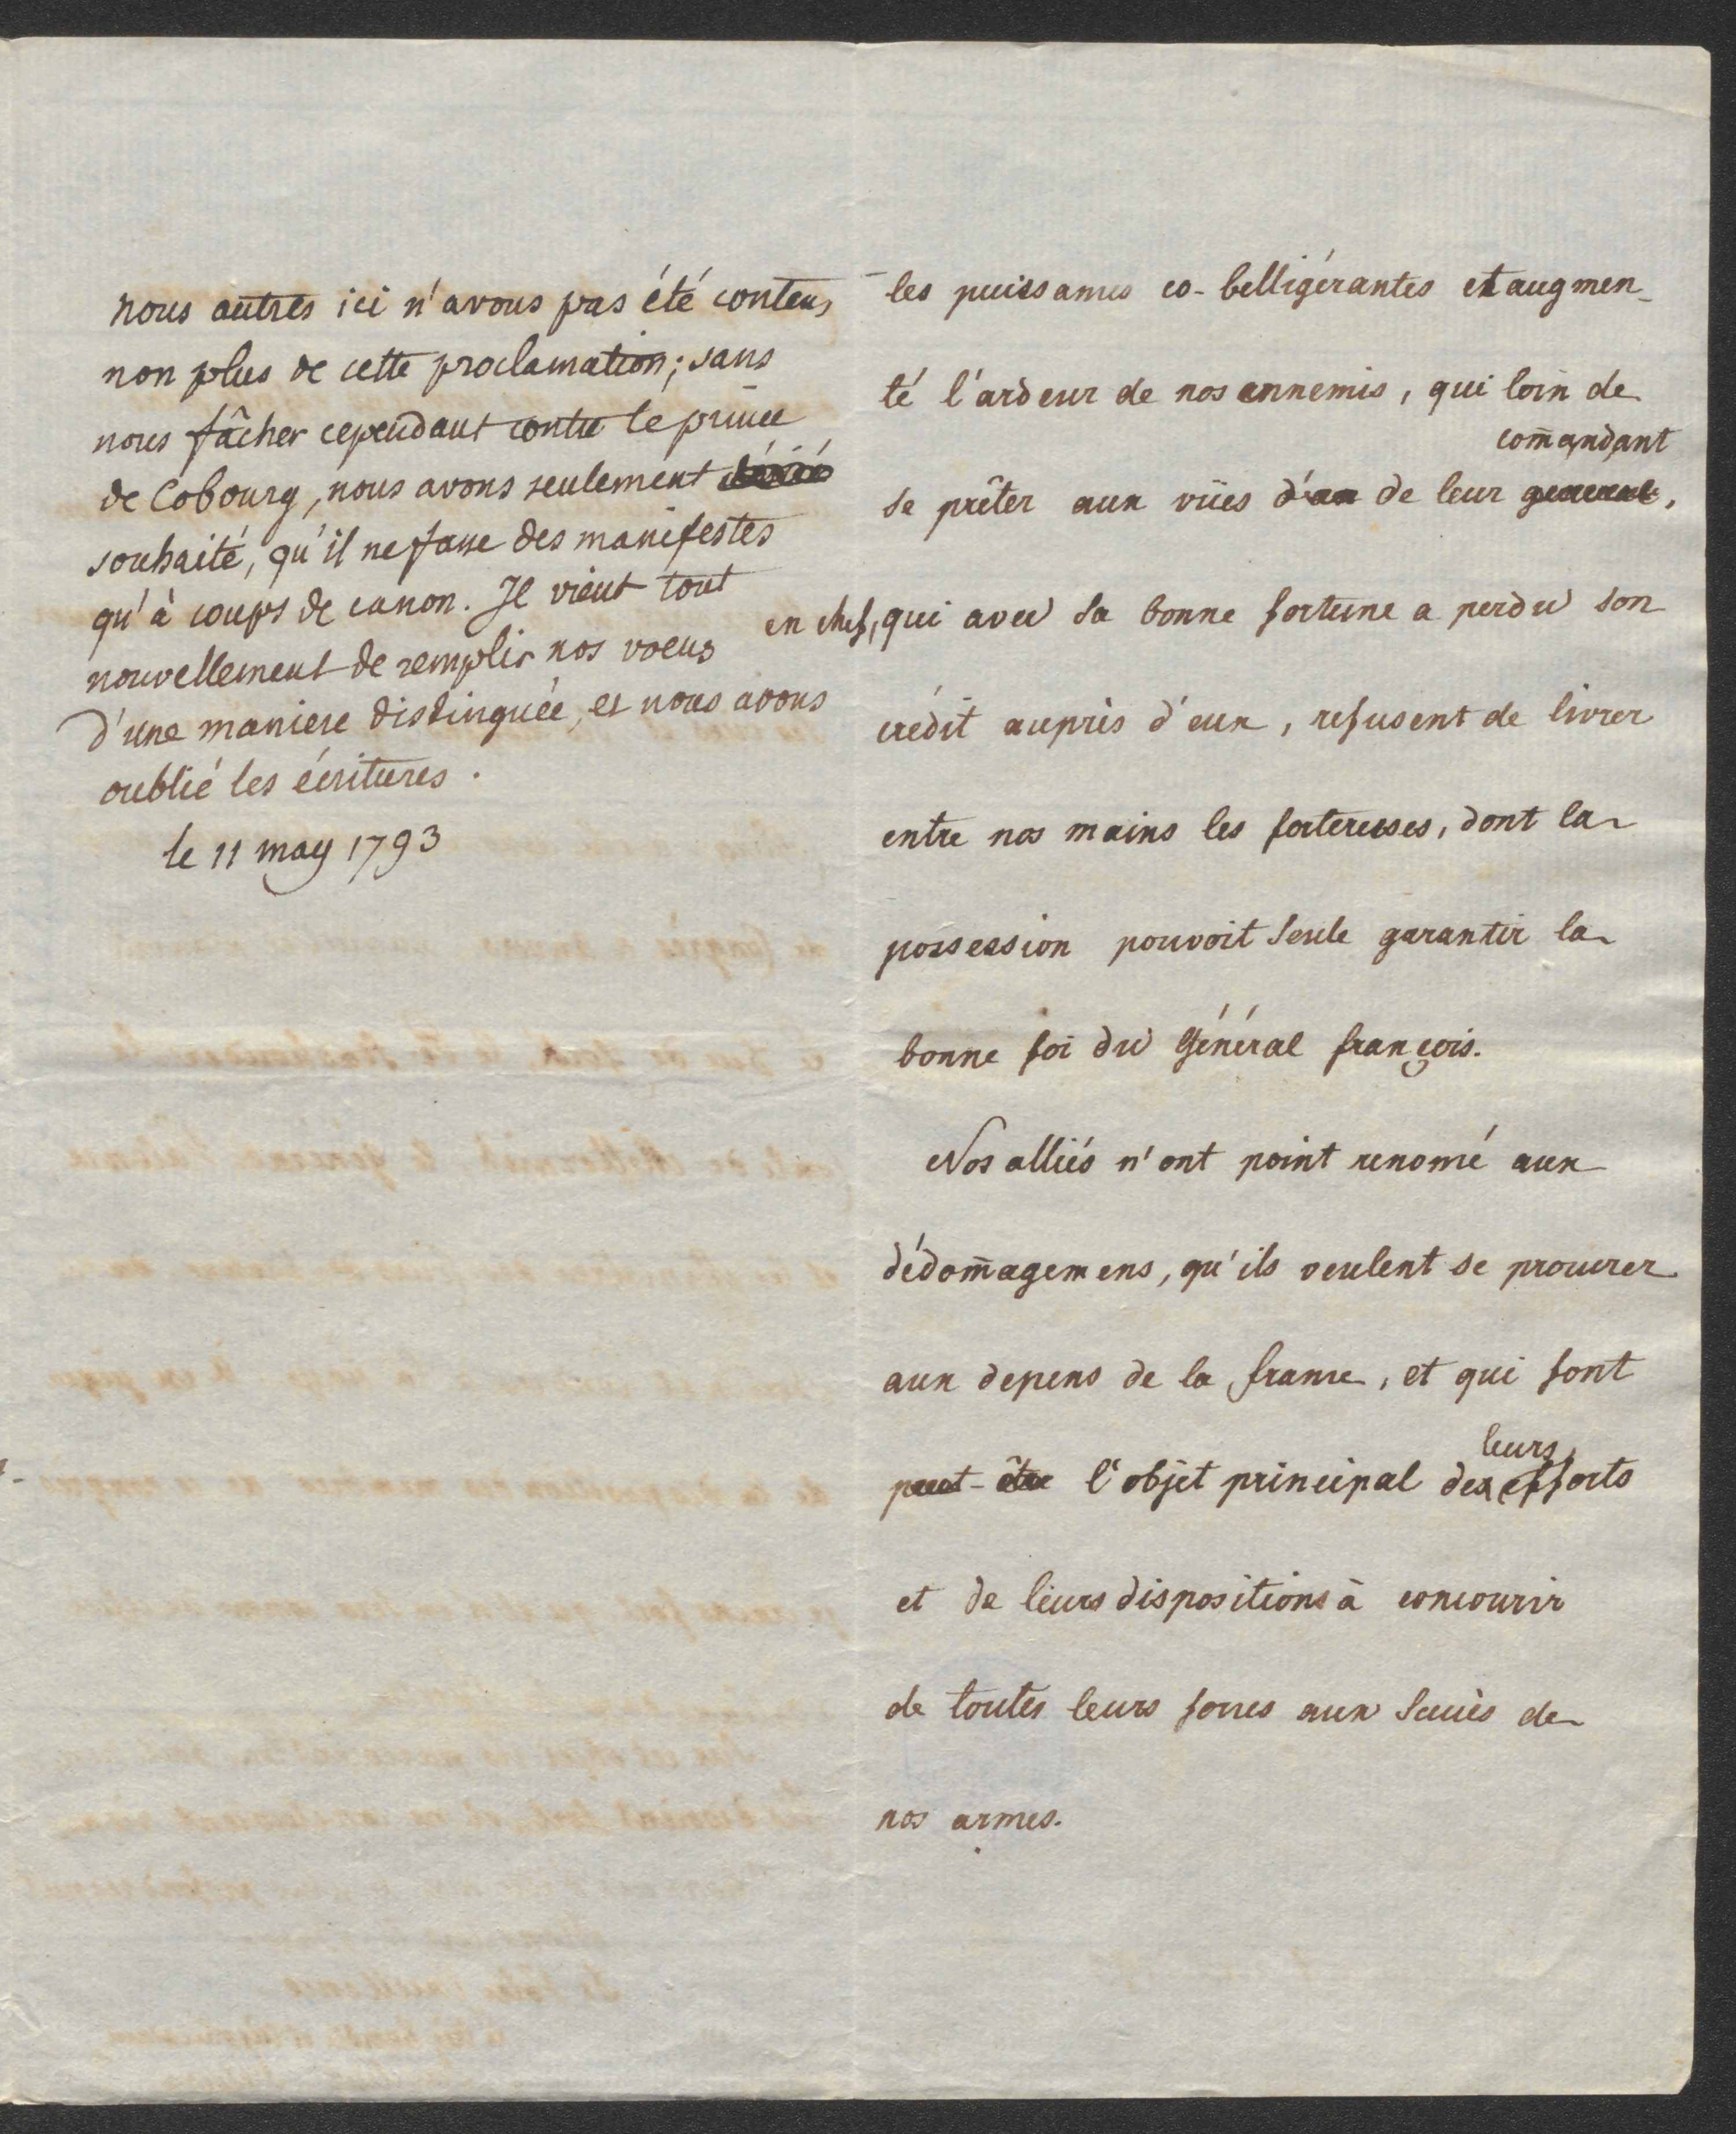 nous autres ici n'avons pas été contens
non plus de cette proclamation; sans
nous fâcher cependant contre le prince
de Cobourg, nous avons seulement
souhaité, qu'il ne fasse des manifestes
qu'à coups de canon. Il vient tout
nouvellement de remplir nos voeus
d'une maniere distinguée, et nous avons
oublié les écritures.
le 11 may 1793
les puissances co-belligérantes et augmen-
té l'ardeur de nos ennemis, qui loin de
com̄andant
se prêter aux vües d'un de leur general,
en chef, qui avec sa bonne fortune a perdu son
crédit auprès d'eux, refusent de livrer
entre nos mains les forteresses, dont la
possession pouvoit seule garantir la
bonne foi du Général françois.
Nos alliés n'ont point renoncé aux
dédom̄agemens, qu'ils veulent se procurer
aux depens de la france, et qui font
leurs
peut-être l'objet principal des efforts
et de leurs dispositions à concourir
de toutes leurs forces aux succès de
nos armes.